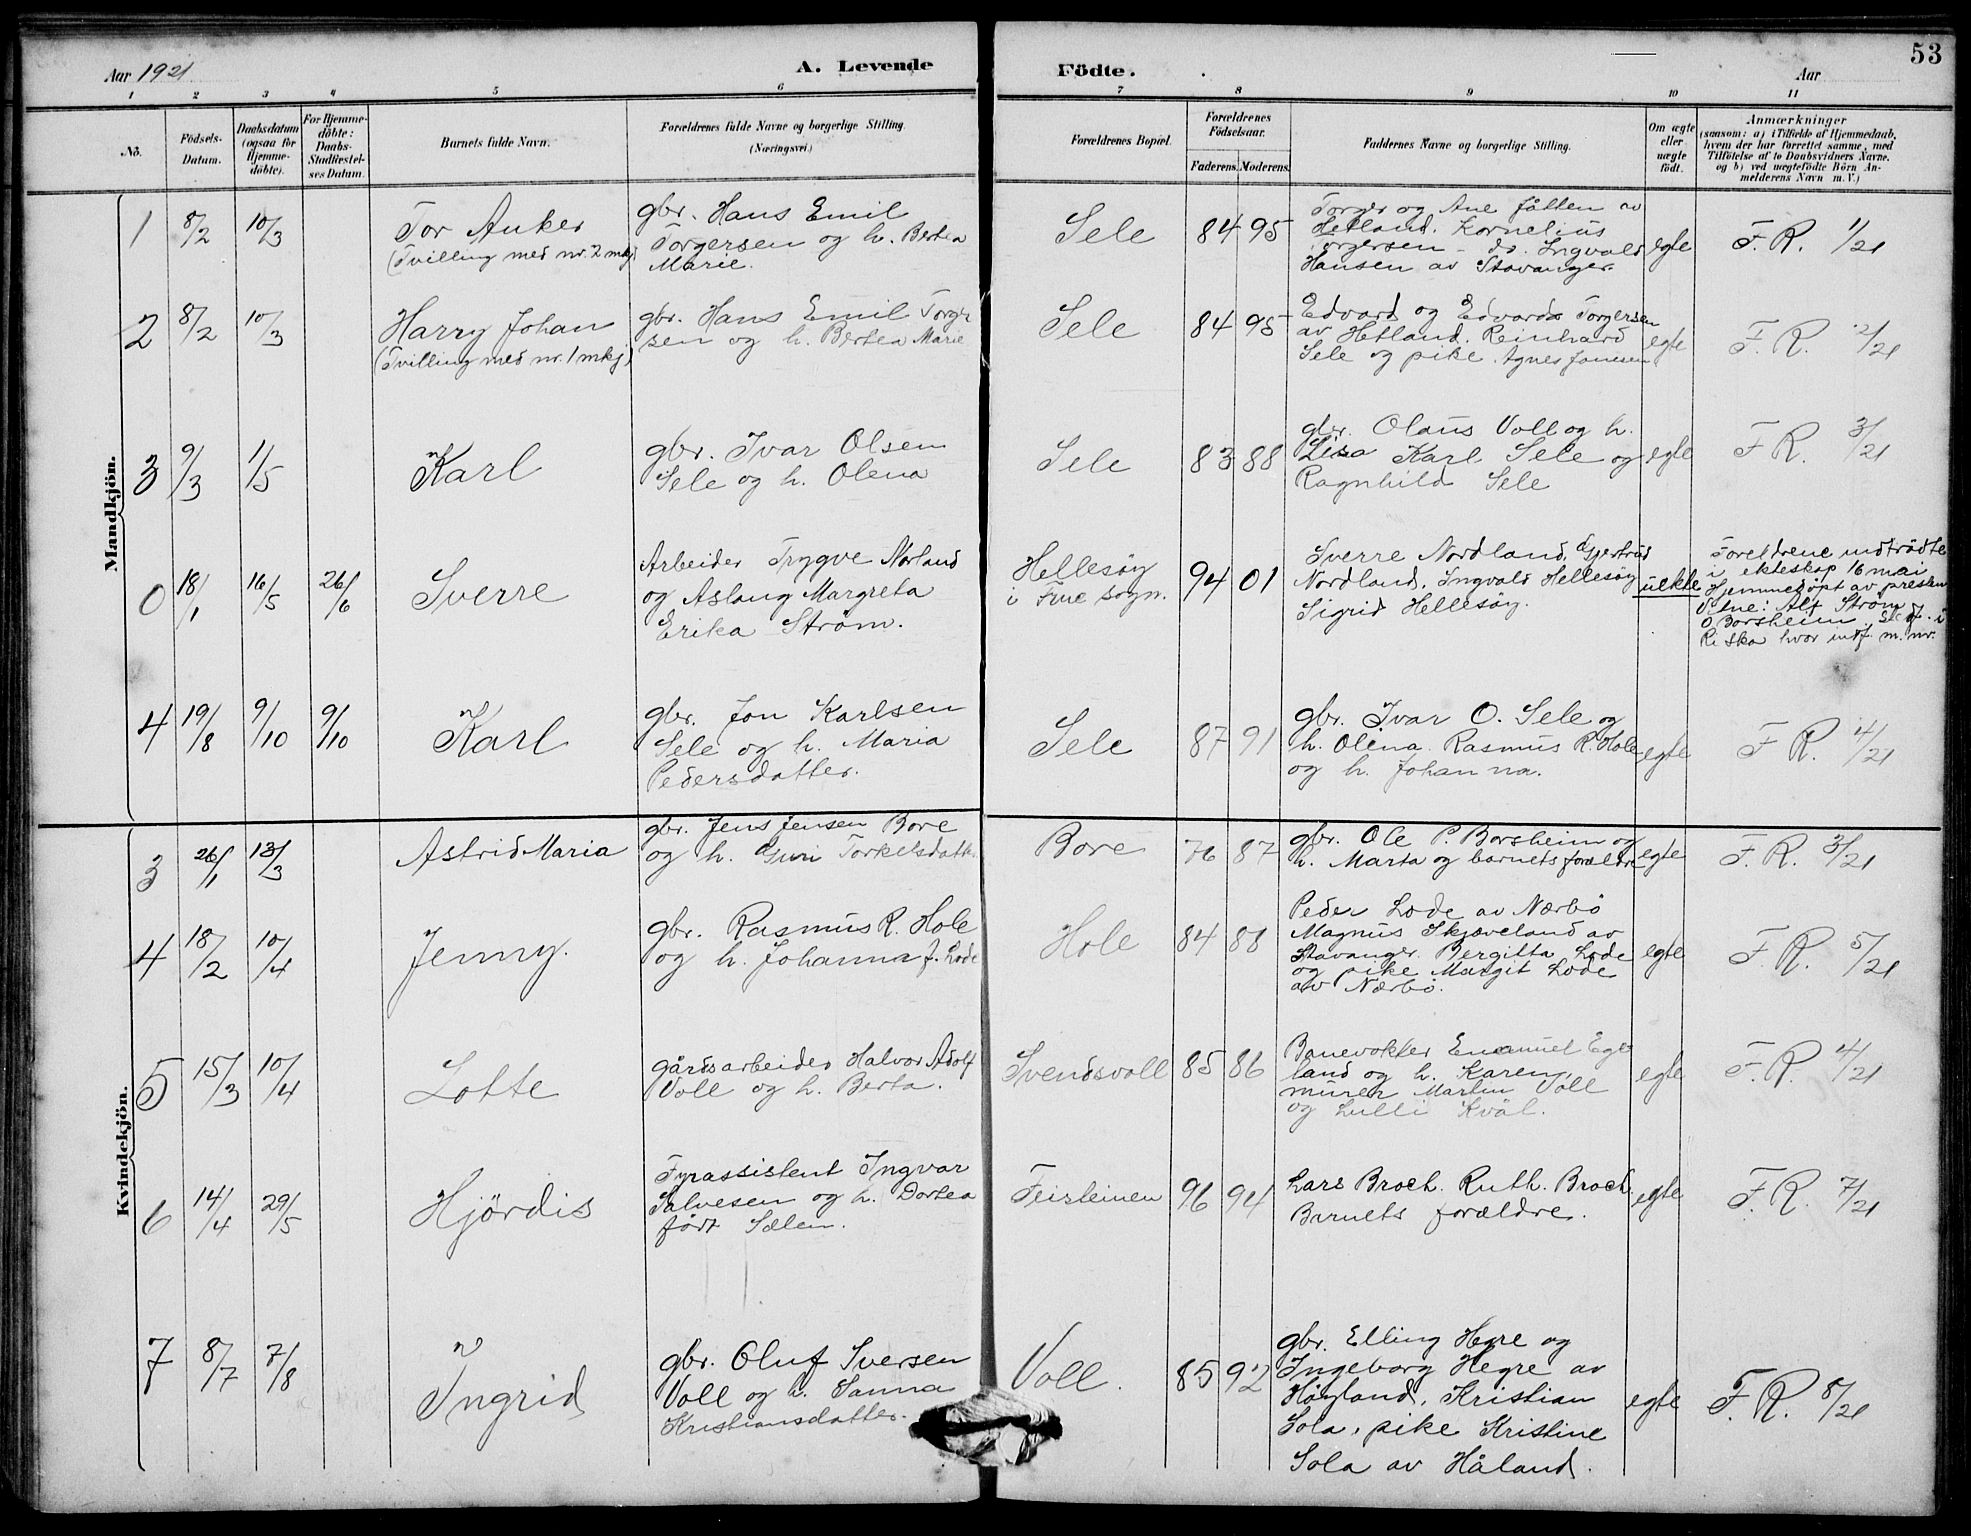 53
Aar 1921
A. Levende
Födte.
Aar
1 2 3 4 5 6 7 8 9 10 11
No.
Födsels-
Datum.
Daabsdatum
(ogsaa for
Hjemme-
döbte).
For Hjemme-
döbte:
Daabs-
Stadfæstel-
ses Datum.
Barnets fulde Navn.
Forældrenes fulde Navne og borgerlige Stilling.
(Næringsvei.)
Forældrenes Bopæl.
Forældrenes
Födselsaar.
Faderens. Moderens.
Faddernes Navne og borgerlige Stilling.
Om ægte
eller
uægte
födt.
Anmærkninger
(saasom: a) i Tilfælde af Hjemmedaab,
hvem der har forrettet samme, med
Tilföielse af to Daabsvidners Navne.
og b) ved uægtefödte Börn An-
melderens Navn m. V.)
Mandkjön.
1
8/2
10/3
Tor Anker
(Tvilling med nr. 2 mkj)
gbr. Hans Emil
Torgersen og h. Bertea
Marie.
Sele
84 95
Torger og Ane
av
Hetland. Kornelius
Torgersen - ds. Ingvald
Hansen av Stavanger.
egte
F. R. 1/21
2
8/2
10/3
Harry Johan
(Tvilling med nr. 1 mkj)
gbr. Hans Emil Torger
sen og h. Bertea Marie
Sele
84 95
Edvard og Edvarda Torgersen
av Hetland. Reinhard
Sele og pike Agnes Jonesen
egte
F. R. 2/21
3
9/3
1/5
Karl
gbr. Ivar Olsen
Sele og h. Olena
Sele
83 88
gbr. Olaus Voll og h.
Lisa Karl Sele og
Ragnhild Sele
egte
F R. 3/21
0
18/1
16/5
26/6
Sverre
Arbeider Trygve Norland
og Aslaug Margreta
Erika Ström.
Hellesöy
i Frue sogn.
94 01
Sverre Nordland, Gjertrud
Nordland, Ingvald Hellesöy
Sigrid Hellesöy.
uekte
Foreldrene indtrådte
i ekteskap 16 mai
Hjemmedöpt av presten
Vitne: Alf Ström
O Borsheim.
i
Riska hvor indf. m. nr.
4
19/8
9/10
9/10
Karl
gbr. Jon Karlsen
Sele og h. Maria
Pedersdatter.
Sele
87 91
gbr. Ivar O. Sele og
h. Olena. Rasmus R. Hole
og h. Johanna.
egte
F R. 4/21
Kvindekjön.
3
26/1
13/3
Astrid Maria
gbr. Jens Jensen Bore
og h. Guri Torkelsdatt.
Bore
76 87
gbr. Ole P. Borsheim og
h. Marta og barnets forældre
egte
F. R. 3/21
4
18/2
10/4
Jenny.
gbr. Rasmus R. Hole
og h. Johanna f. Lode
Hole
84 88
Peder Lode av Nærbö
Magnus Skjæveland av
Stavanger. Bergitta Lode
og pike Margit Lode
av Nærbö.
egte
F. R. 5/21
5
15/3
10/4
Lotte
gårdsarbeider Halvor Adolf
Voll og h. Berta.
Svendsvoll
85 86
Banevokter Emanuel Ege
land og h. Karen,
murer Martin Voll
og Lulli Kvål.
egte
F. R. 4/21
6
14/4
29/5
Hjördis
Fyrassistent Ingvar
Salvesen og h. Dortea
födt Sælen.
Feisteinen
96 94
Lars Broch. Ruth. Broch.
Barnets forældre.
egte
F. R. 7/21
7
8/7
7/8
Ingrid
gbr. Oluf Iversen
Voll og h. Sanna
Kristiansdatter.
Voll.
85 92
gbr. Elling Hegre og
Ingeborg Hegre av
Högland, Kristian
Sola, pike Kristine
Sola av Håland.
egte
F. R. 8/21